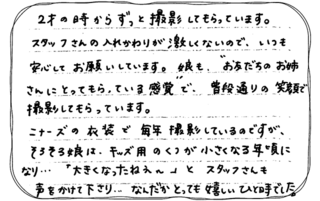 2才の時からずっと撮影してもらっています。
スタッフさんの入れかわりが激しくないので、いつも
安心してお願いしています。娘も、“お友だちのお姉
さんにとってもらっている感覚”で、普段通りの笑顔で
撮影してもらっています。
ニナーズの衣装で毎年撮影しているのですが、
そろそろ娘は、キッズ用のくつが小さくなる年頃に
なり…「大きくなったねぇ〜」とスタッフさんも
声をかけて下さり…なんだかとっても嬉しいひと時でした。